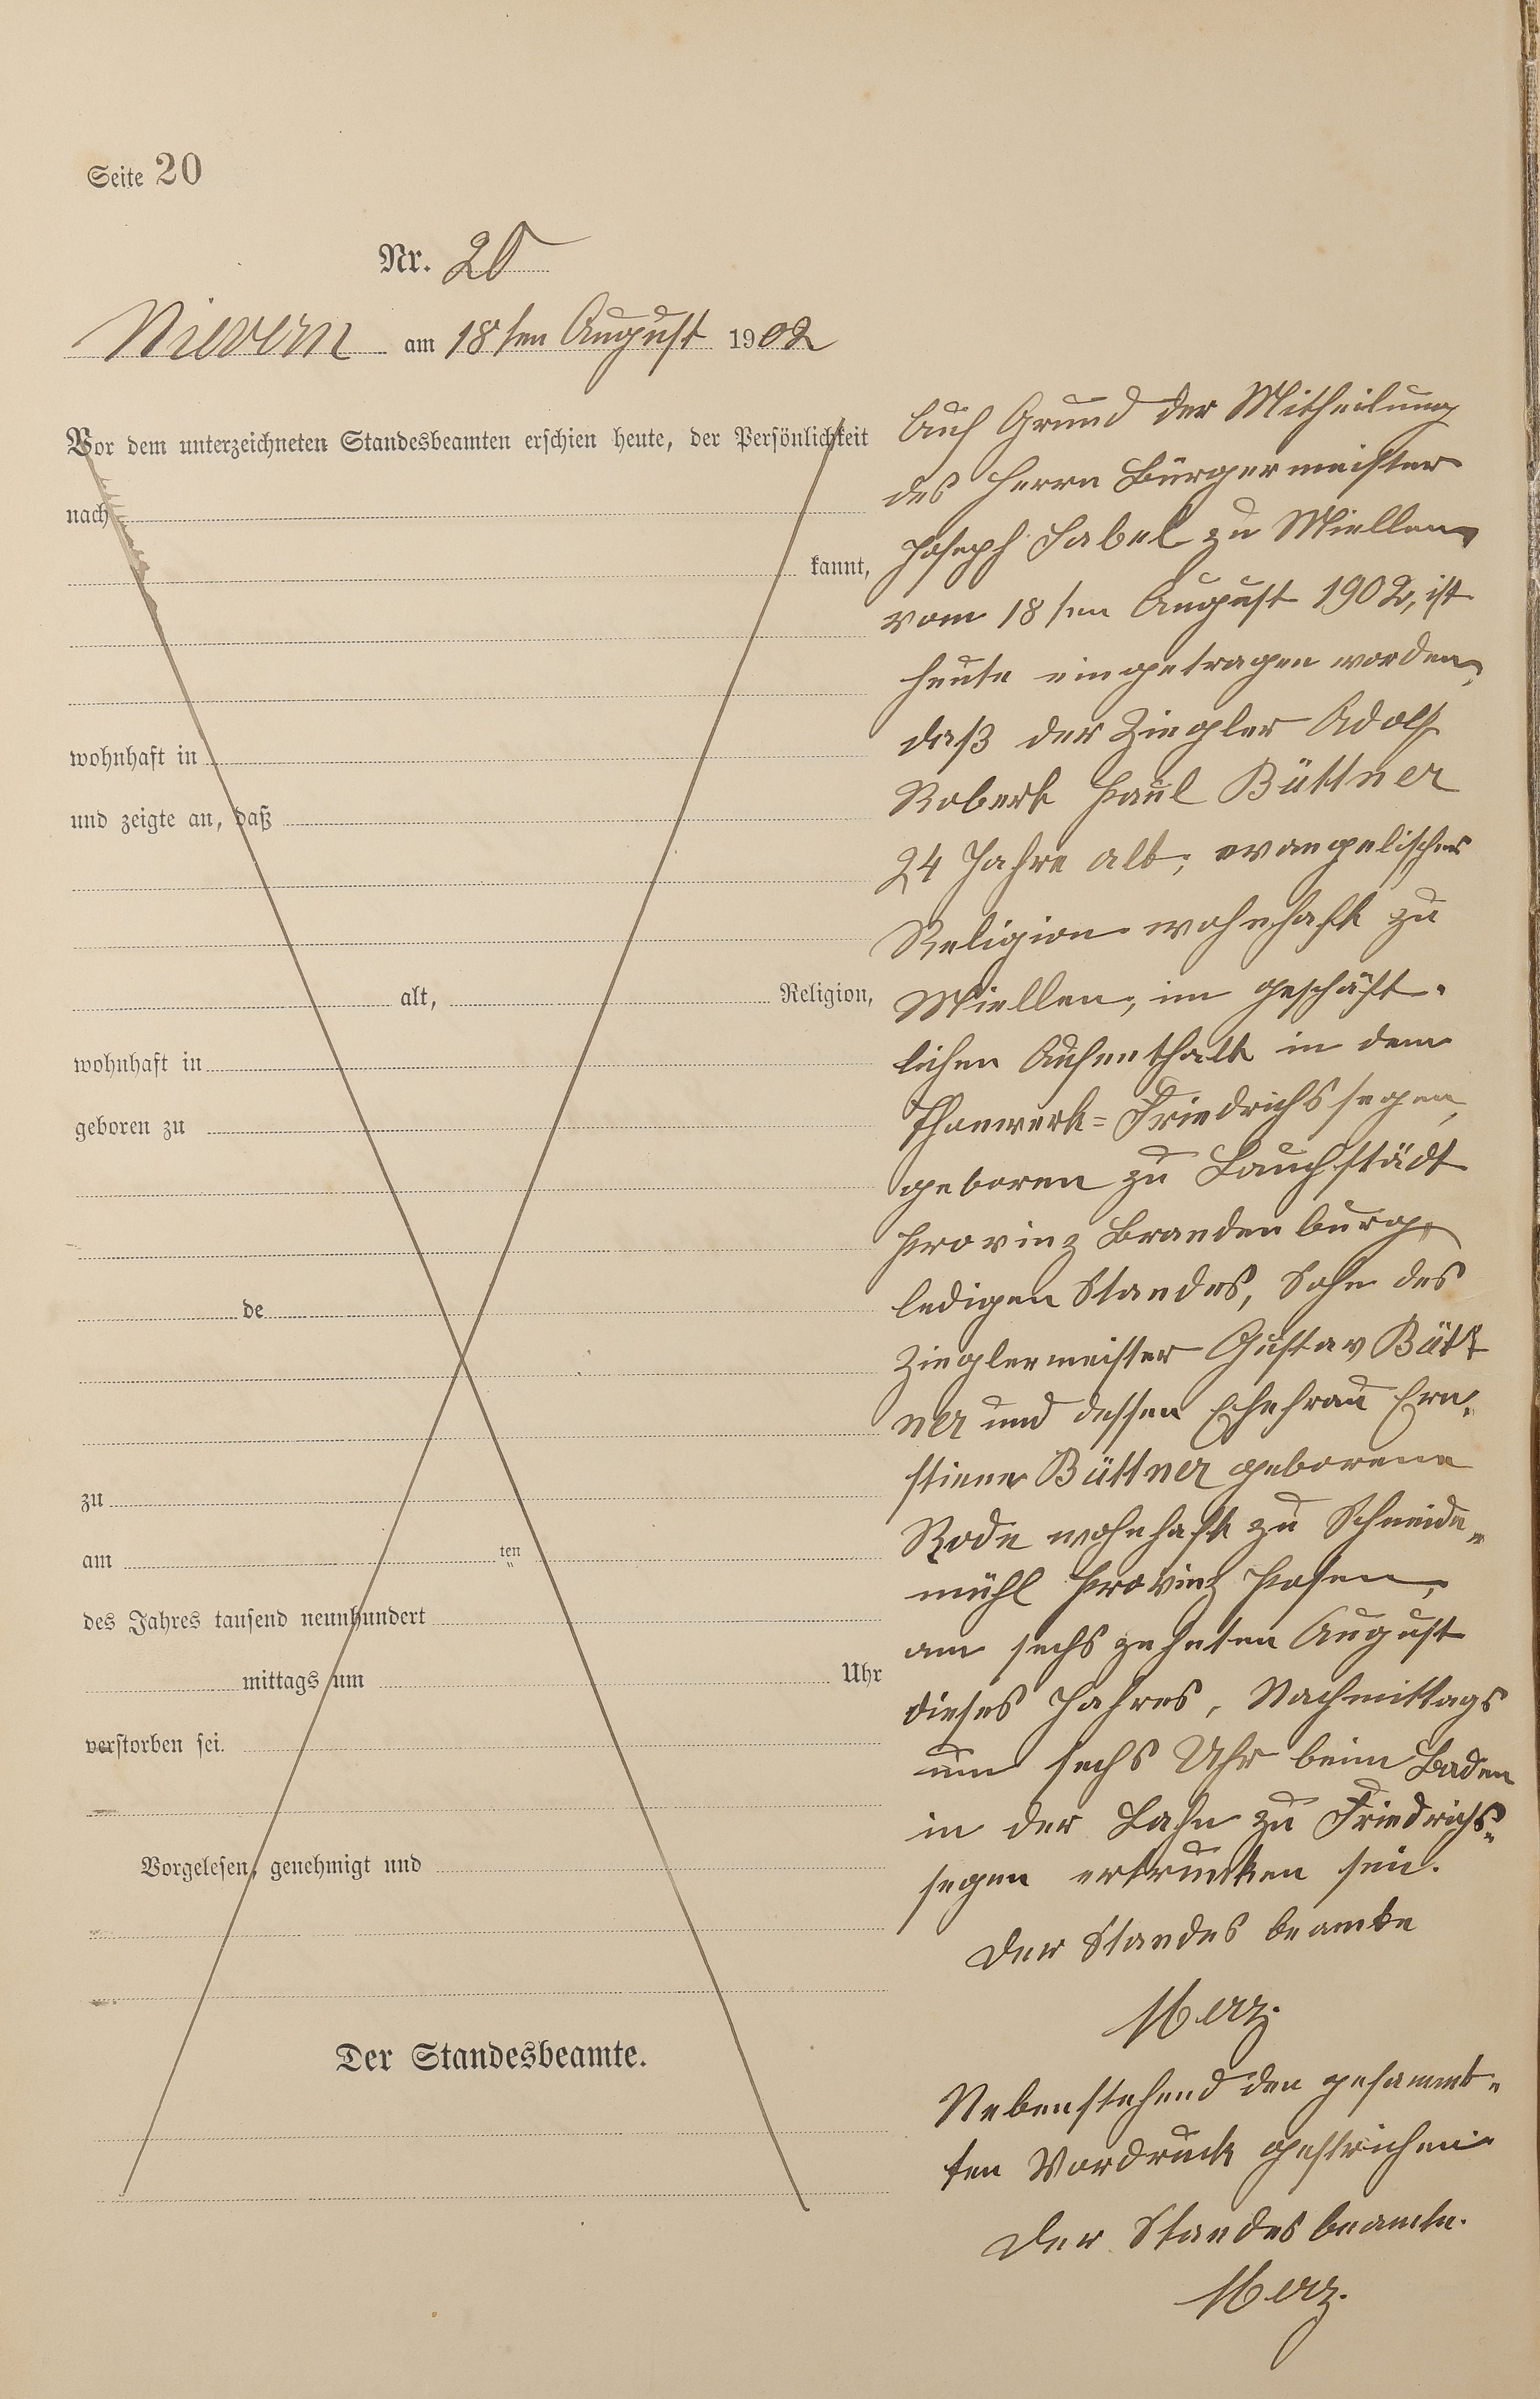 Seite 20
Nr. 20
Nievern am 18ten August 1902
Vor dem unterzeichneten Standesbeamten erschien heute, der Persönlichkeit
nach
kannt,
wohnhaft in
und zeigte an, daß
alt, Religion,
wohnhaft in
geboren zu
de
zu
am ten
des Jahres tausend neunhundert
mittags um Uhr
verstorben sei.
Vorgelesen, genehmigt und
Der Standesbeamte.
Auf Grund der Mittheilung
des Herrn Bürgermeister
Joseph Sabel zu Miellen
vom 18ten August 1902, ist
heute eingetragen worden,
daß der Ziegler Adolf
Robert Paul Büttner
24 Jahre alt, evangelischer
Religion wohnhaft zu
Miellen, im geschäft-
lichen Aufenthalt in dem
Thonwerk=Friedrichssegen,
geboren zu Lauchstädt
Provinz Brandenburg,
ledigen Standes, Sohn des
Zieglermeister Gustav Bütt
ner und dessen Ehefrau Ern-
stine Büttner geborene
Rode wohnhaft zu Schneide-
mühl Provinz Posen,
am sechszehnten August
dieses Jahres, Nachmittags
um sechs Uhr beim Baden
in der Lahn zu Friedrichs-
segen ertrunken sei.
Der Standesbeamte
Merz.
Nebenstehend den gesammt-
ten Vordruck gestrichen
Der Standesbeamte.
Merz.